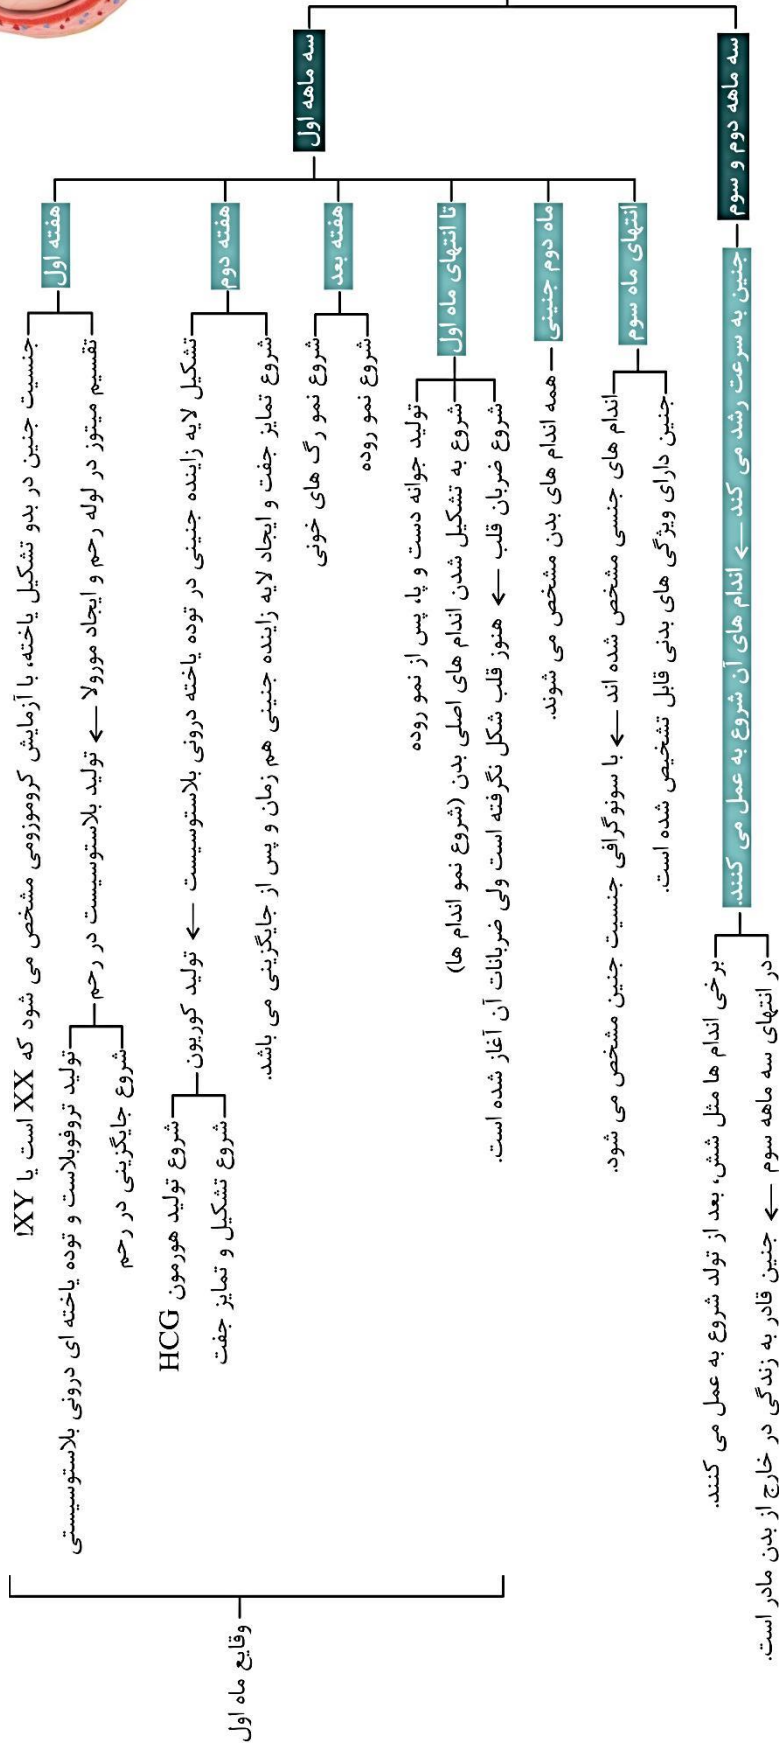 سه ماهه اول
هفته اول
جنسیت جنین در بدو تشکیل یاخته، با آزمایش کروموزومی مشخص می شود که XX است یا XY!
تقسیم میتوز در لوله رحم و ایجاد مورولا ← تولید بلاستوسیست در رحم
تولید تروفوبلاست و توده یاخته ای درونی بلاستوسیستی
شروع جایگزینی در رحم
هفته دوم
تشکیل لایه زاینده جنینی در توده یاخته درونی بلاستوسیست ← تولید کوریون
شروع تولید هورمون HCG
شروع تشکیل و تمایز جفت
شروع تمایز جفت و ایجاد لایه زاینده جنینی هم زمان و پس از جایگزینی می باشد.
هفته بعد
شروع نمو رگ های خونی
شروع نمو روده
تا انتهای ماه اول
تولید جوانه دست و پا، پس از نمو روده
شروع به تشکیل شدن اندام های اصلی بدن (شروع نمو اندام ها)
شروع ضربان قلب ← هنوز قلب شکل نگرفته است ولی ضربانات آن آغاز شده است.
وقایع ماه اول
ماه دوم جنینی
همه اندام های بدن مشخص می شوند.
انتهای ماه سوم
اندام های جنسی مشخص شده اند ← با سونوگرافی جنسیت جنین مشخص می شود.
جنین دارای ویژگی های بدنی قابل تشخیص شده است.
سه ماهه دوم و سوم
جنین به سرعت رشد می کند ← اندام های آن شروع به عمل می کنند.
برخی اندام ها مثل شش، بعد از تولد شروع به عمل می کنند.
در انتهای سه ماهه سوم ← جنین قادر به زندگی در خارج از بدن مادر است.